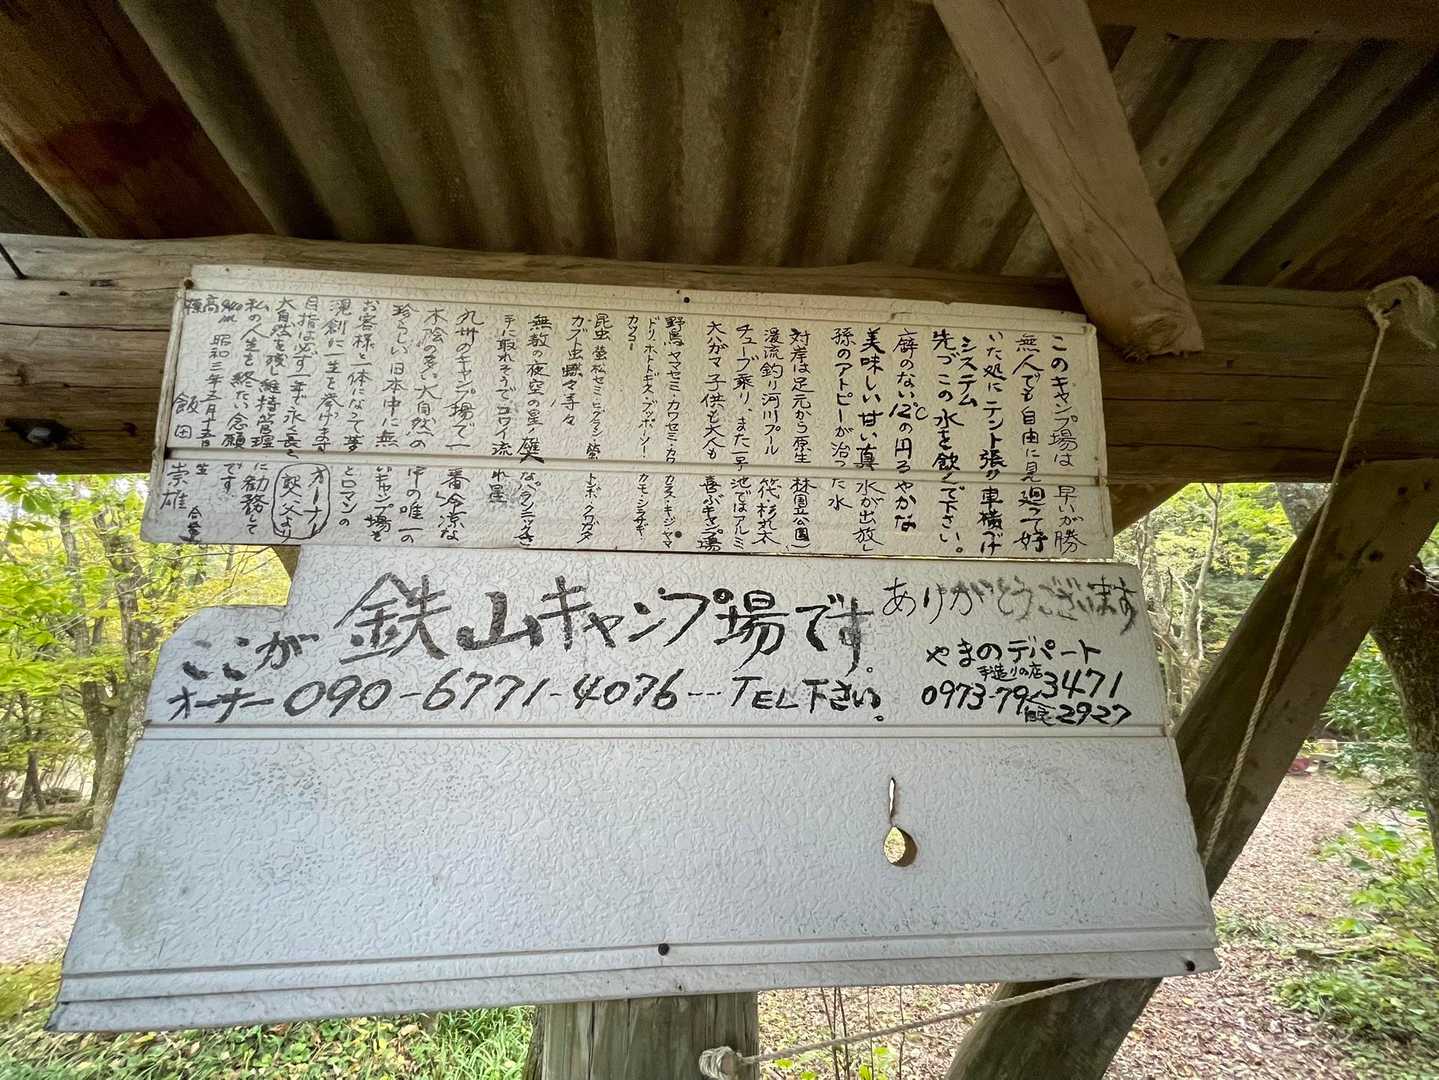 このキャンプ場は 早いが勝
無人でも自由に見廻って好
いた処にテント張り車横づけ
システム
先づこの水を飲んで下さい。
癖のない12℃の円るやかな
美味しい甘い真水が出放し
孫のアトピーが治った水
対岸は足元から原生林国立公園)
渓流釣り河川プール 筏・杉丸太
チューブ乗り、また一予池ではアルミ
大ガマ子供も大人も喜ぶキャンプ場
野鳥 ヤマセミ・カワセミ・カワガラス・キジ・ヤマ
ドリ・ホトトギス・ブッポーソー カモ・シラサギ・
カッコー
昆虫 蛍松セミ・ヒグラシ・蛍 トンボ・クワガタ
カブト虫蝶々等々
無数の夜空の星!雄大なパノラミック
手に取れそうでコワイ流れ星
九州のキャンプ場で一番冷涼な
木陰の多い大自然への中の唯一の
珍らしい日本中に無いキャンプ場を
お客様と一体になって夢とロマンの
演創に一生を捧げます
目指は必ず一年で永く長く オーナー
大自然を残し維持管理 親父より
私の人生を終たい念願に勤務して
です。
昭和三年五月十五日生
飯田 崇雄
ありがとうございます
ここが 鉄山キャンプ場です。
オーナー 090-6771-4076---TEL下さい。
やまのデパート
手造りの店
0973-79-3471
自宅 2927